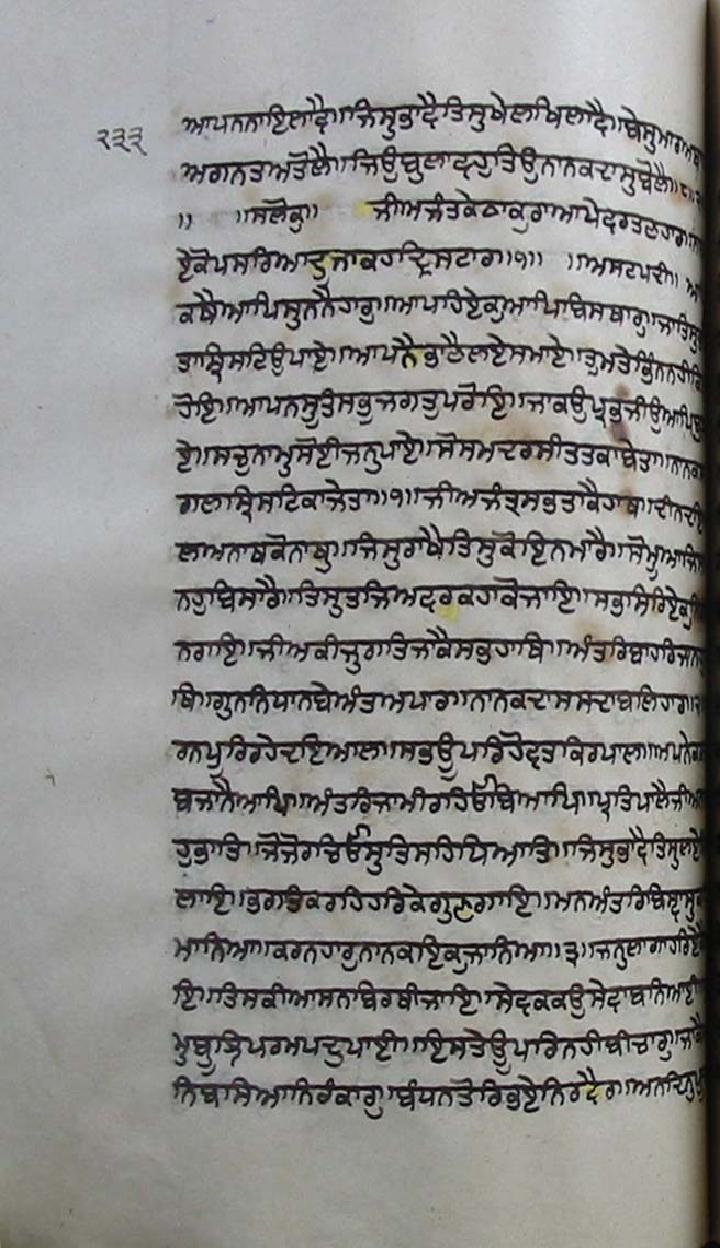 ੨੩੩
ਆਪਨਨਾਇਲਾਵੈ॥ਜਿਸੁਭਾਵੈਤਿਸੁਖੇਲਖਿਲਾਵੈ॥ਬੇਸੁਮਾਰਅਥਾ
ਅਗਨਤਅਤੋਲੈ॥ਜਿਉਬੁਲਾਵਹੁਤਿਉਨਾਨਕਦਾਸੁਬੋਲੈ॥੮॥
॥ ॥ਸਲੋਕੁ॥ ਜੀਅਜੰਤਕੇਠਾਕੁਰਾਆਪੇਵਰਤਣਹਾਰ॥
ਏਕੋਪਸਰਿਆਦੁਜਾਕਹਦ੍ਰਿਸਟਾਰ॥੧॥ ॥ਅਸਟਪਦੀ॥ ਆ
ਕਥੈਆਪਿਸੁਨਨੈਹਾਰੁ॥ਆਪਹਿਏਕੁਆਪਿਬਿਸਥਾਰੁ॥ਜਾਤਿਸੁ
ਤਾਸ੍ਰਿਸਟਿਉਪਾਏ॥ਆਪਨੈਭਾਣੈਲਏਸਮਾਏ॥ਤੁਮਤੇਭਿੰਨਨਹੀ
ਹੋਇ॥ਆਪਨਸੂਤਿਸਭੁਜਗਤੁਪਰੋਇ॥ਜਾਕਉਪ੍ਰਭਜੀਉਆਪਿ
ਏ॥ਸਚੁਨਾਮੁਸੋਈਜਨੁਪਾਏ॥ਸੋਸਮਦਰਸੀਤਤਕਾਬੇਤਾ॥ਨਾਨਕ
ਗਲਸ੍ਰਿਸਟਿਕਾਜੇਤਾ॥੧॥ਜੀਅਜੰਤ੍ਰਸਭਤਾਕੈਹਾਥ॥ਦੀਨਦਇ
ਲਅਨਾਥਕੋਨਾਥੁ॥ਜਿਸੁਰਾਖੈਤਿਸੁਕੋਇਨਮਾਰੈ॥ਸੋਮੂਆਜਿਸੁ
ਨਹੁਬਿਸਾਰੈ॥ਤਿਸੁਤਜਿਅਵਰਕਹਾਕੋਜਾਇ॥ਸਭਸਿਰਿਏਕੁ
ਨਰਾਇ॥ਜੀਅਕੀਜੁਗਤਿਜਾਕੈਸਭਹਾਥਿ॥ਅੰਤਰਿਬਾਹਰਿਜਾਨ
ਥਿ॥ਗੁਨਨਿਧਾਨਬੇਅੰਤਅਪਾਰ॥ਨਾਨਕਦਾਸਸਦਾਬਲਿਹਾਰ॥
ਰਨਪੂਰਿਰਹੇਦਇਆਲ॥ਸਭਊਪਰਿਹੋਵਤਕਿਰਪਾਲ॥ਅਪਨੇਕਰ
ਬਜਾਨੈਆਪਿ॥ਅੰਤਰਿਜਾਮੀਰਹਿਓਬਿਆਪਿ॥ਪ੍ਰਤਿਪਾਲੈਜੀਅ
ਹੁਭਾਤਿ॥ਜੋਜੋਰਚਿਓਸੁਤਿਸਹਿਧਿਆਤਿ॥ਜਿਸੁਭਾਵੈਤਿਸੁਲਏ
ਲਾਇ॥ਭਗਤਿਕਰਹਿਹਰਿਕੇਗੁਣਗਾਇ॥ਮਨਅੰਤਰਿਬਿਸ੍ਵਾਸੁ
ਮਾਨਿਆ॥ਕਰਨਹਾਰੁਨਾਨਕਇਕੁਜਾਨਿਆ॥੩॥ਜਨੁਲਾਗਾਹਰਿਏ
ਇ॥ਤਿਸਕੀਆਸਨਾਬਿਰਥੀਜਾਇ॥ਸੇਵਕਕਉਸੇਵਾਬਨਿਆਈ
ਮੁਬੂਝਿਪਰਮਪਦੁਪਾਈ॥ਇਸਤੇਊਪਰਿਨਹੀਬੀਚਾਰੁ॥ਜਾਕੈ
ਨਿਬਸਿਆਨਿਰੰਕਾਰੁ॥ਬੰਧਨਤੋਰਿਭਏਨਿਰਵੈਰ॥ਅਨਦਿਨੁ